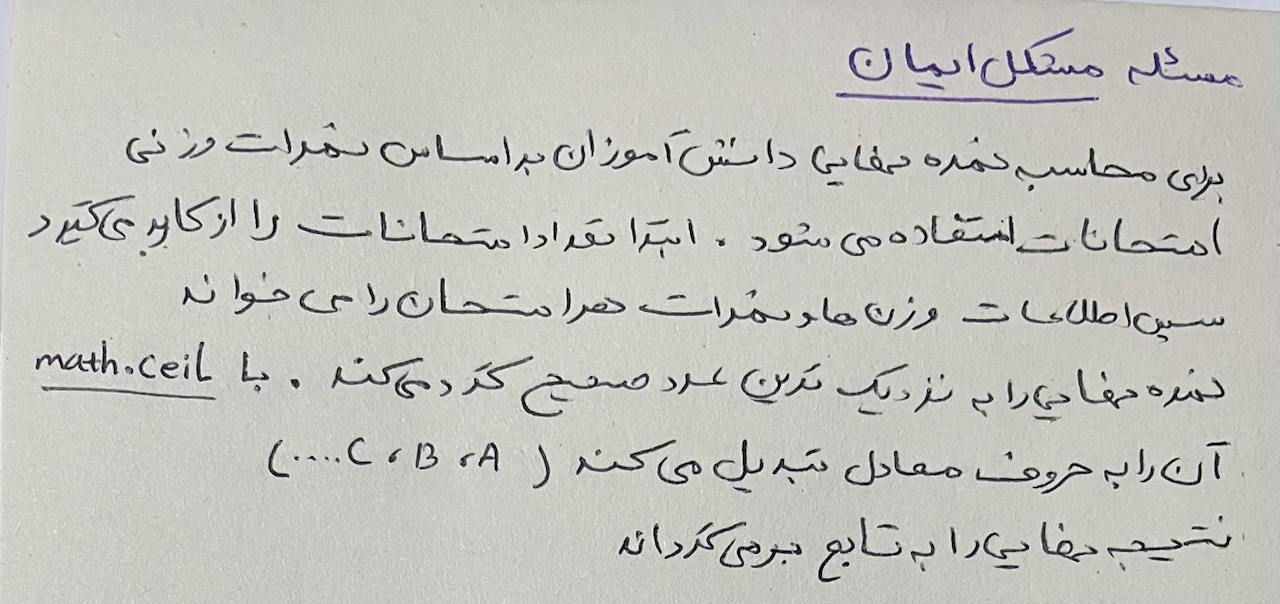 مسئله مشکل ایمان
برای محاسبه نمره نهایی دانش آموزان بر اساس نمرات وزنی
امتحانات استفاده می شود . ابتدا تعداد امتحانات را از کاربر می گیرد
سپس اطلاعات وزن ها و نمرات هر امتحان را می خواند
نمره نهایی را به نزدیک ترین عدد صحیح گرد می کند . با math.ceil
آن را به حروف معادل تبدیل می کند ( A ، B ، C ....)
نتیجه نهایی را به تابع برمی گرداند